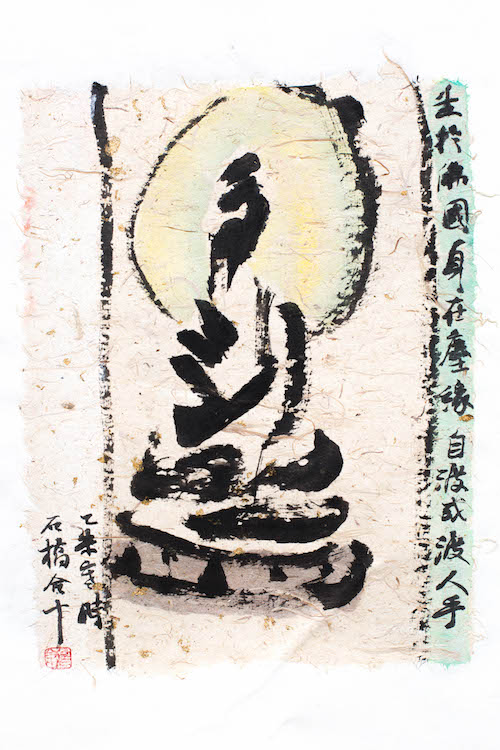 生於佛國身在塵緣 自渡或渡人乎
乙未時
石橋合十